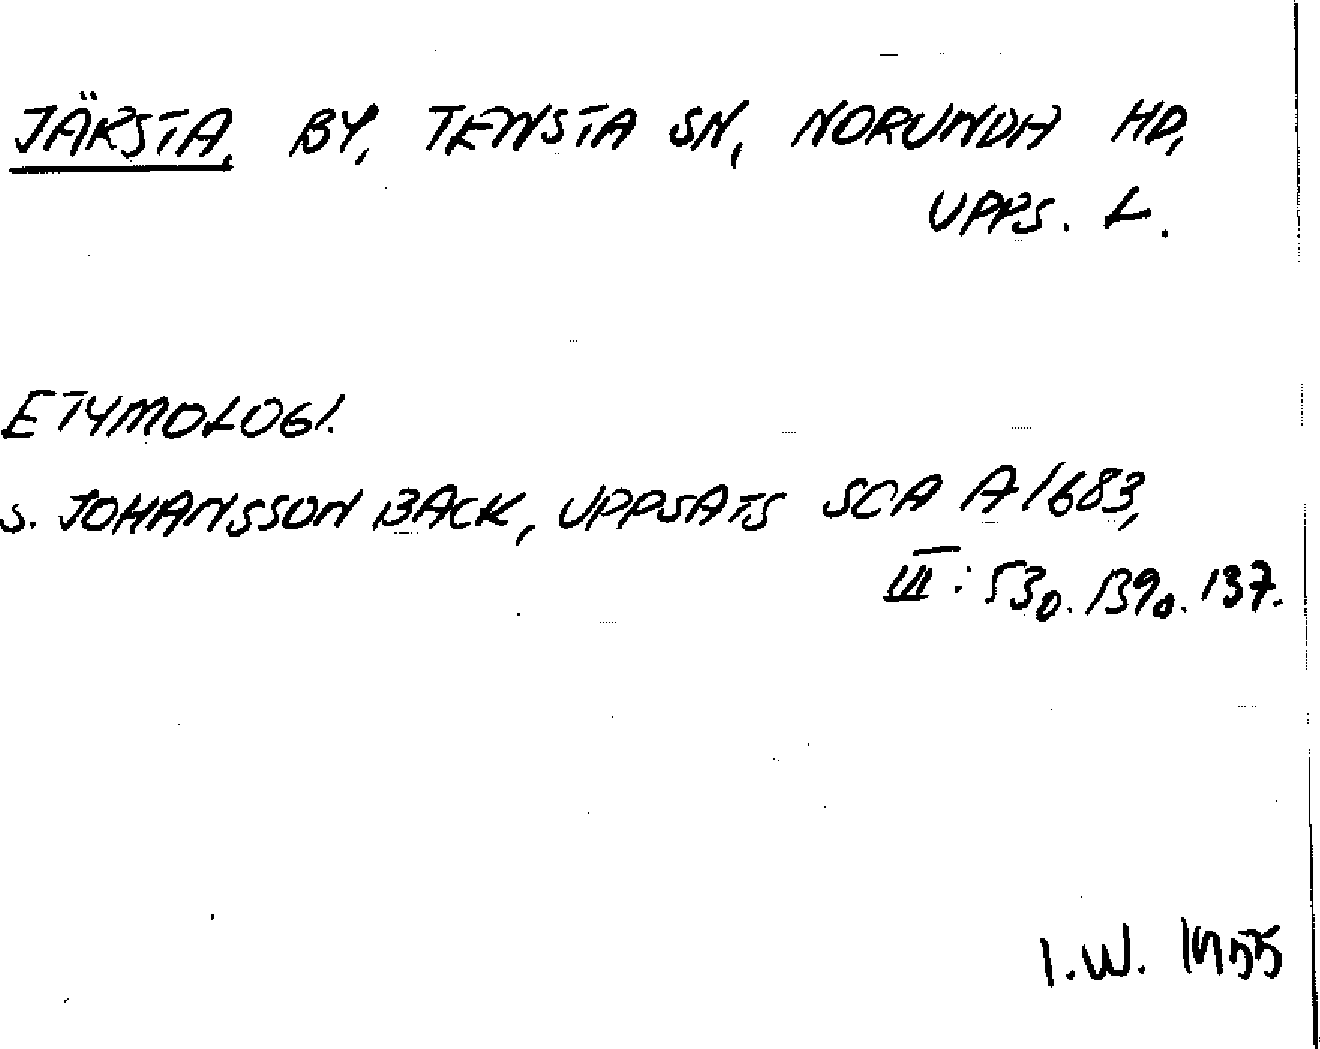 JÄRSTA, BY, TENSTA SN, NORUNDA HD,
UPPS. L.
ETYMOLOGI.
S. JOHANSSON BACK, UPPSATS SOA A 1683,
III: 53o. 139o. 137.
I.W. 1955